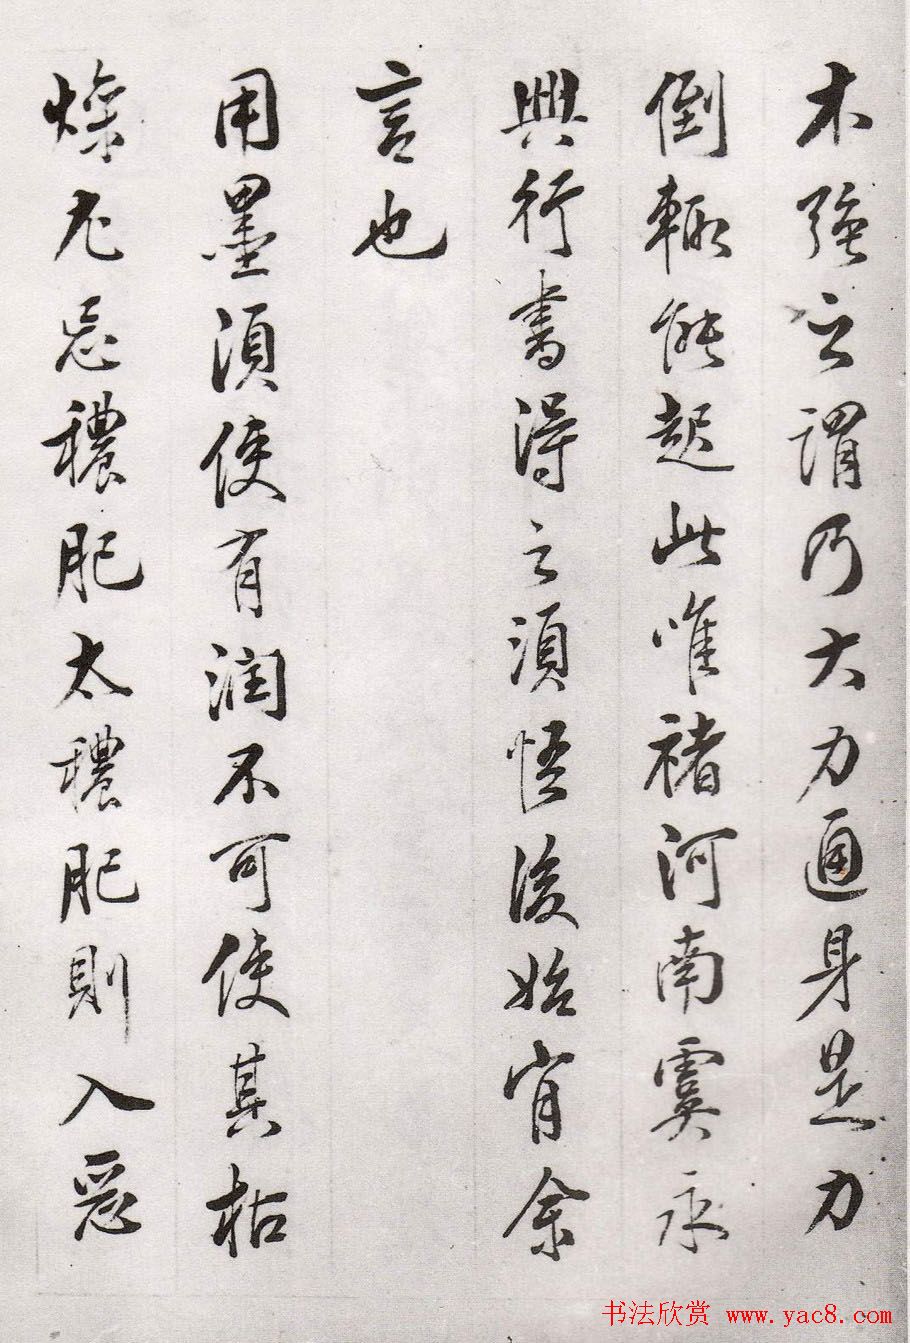 木強之謂乃大力通身是力
倒輒能起此唯褚河南虞永
興行書得之須悟後始肯余
言也
用墨須使有润不可使其枯
燥尤忌穠肥太穠肥則入惡
书法欣赏 www.yac8.com